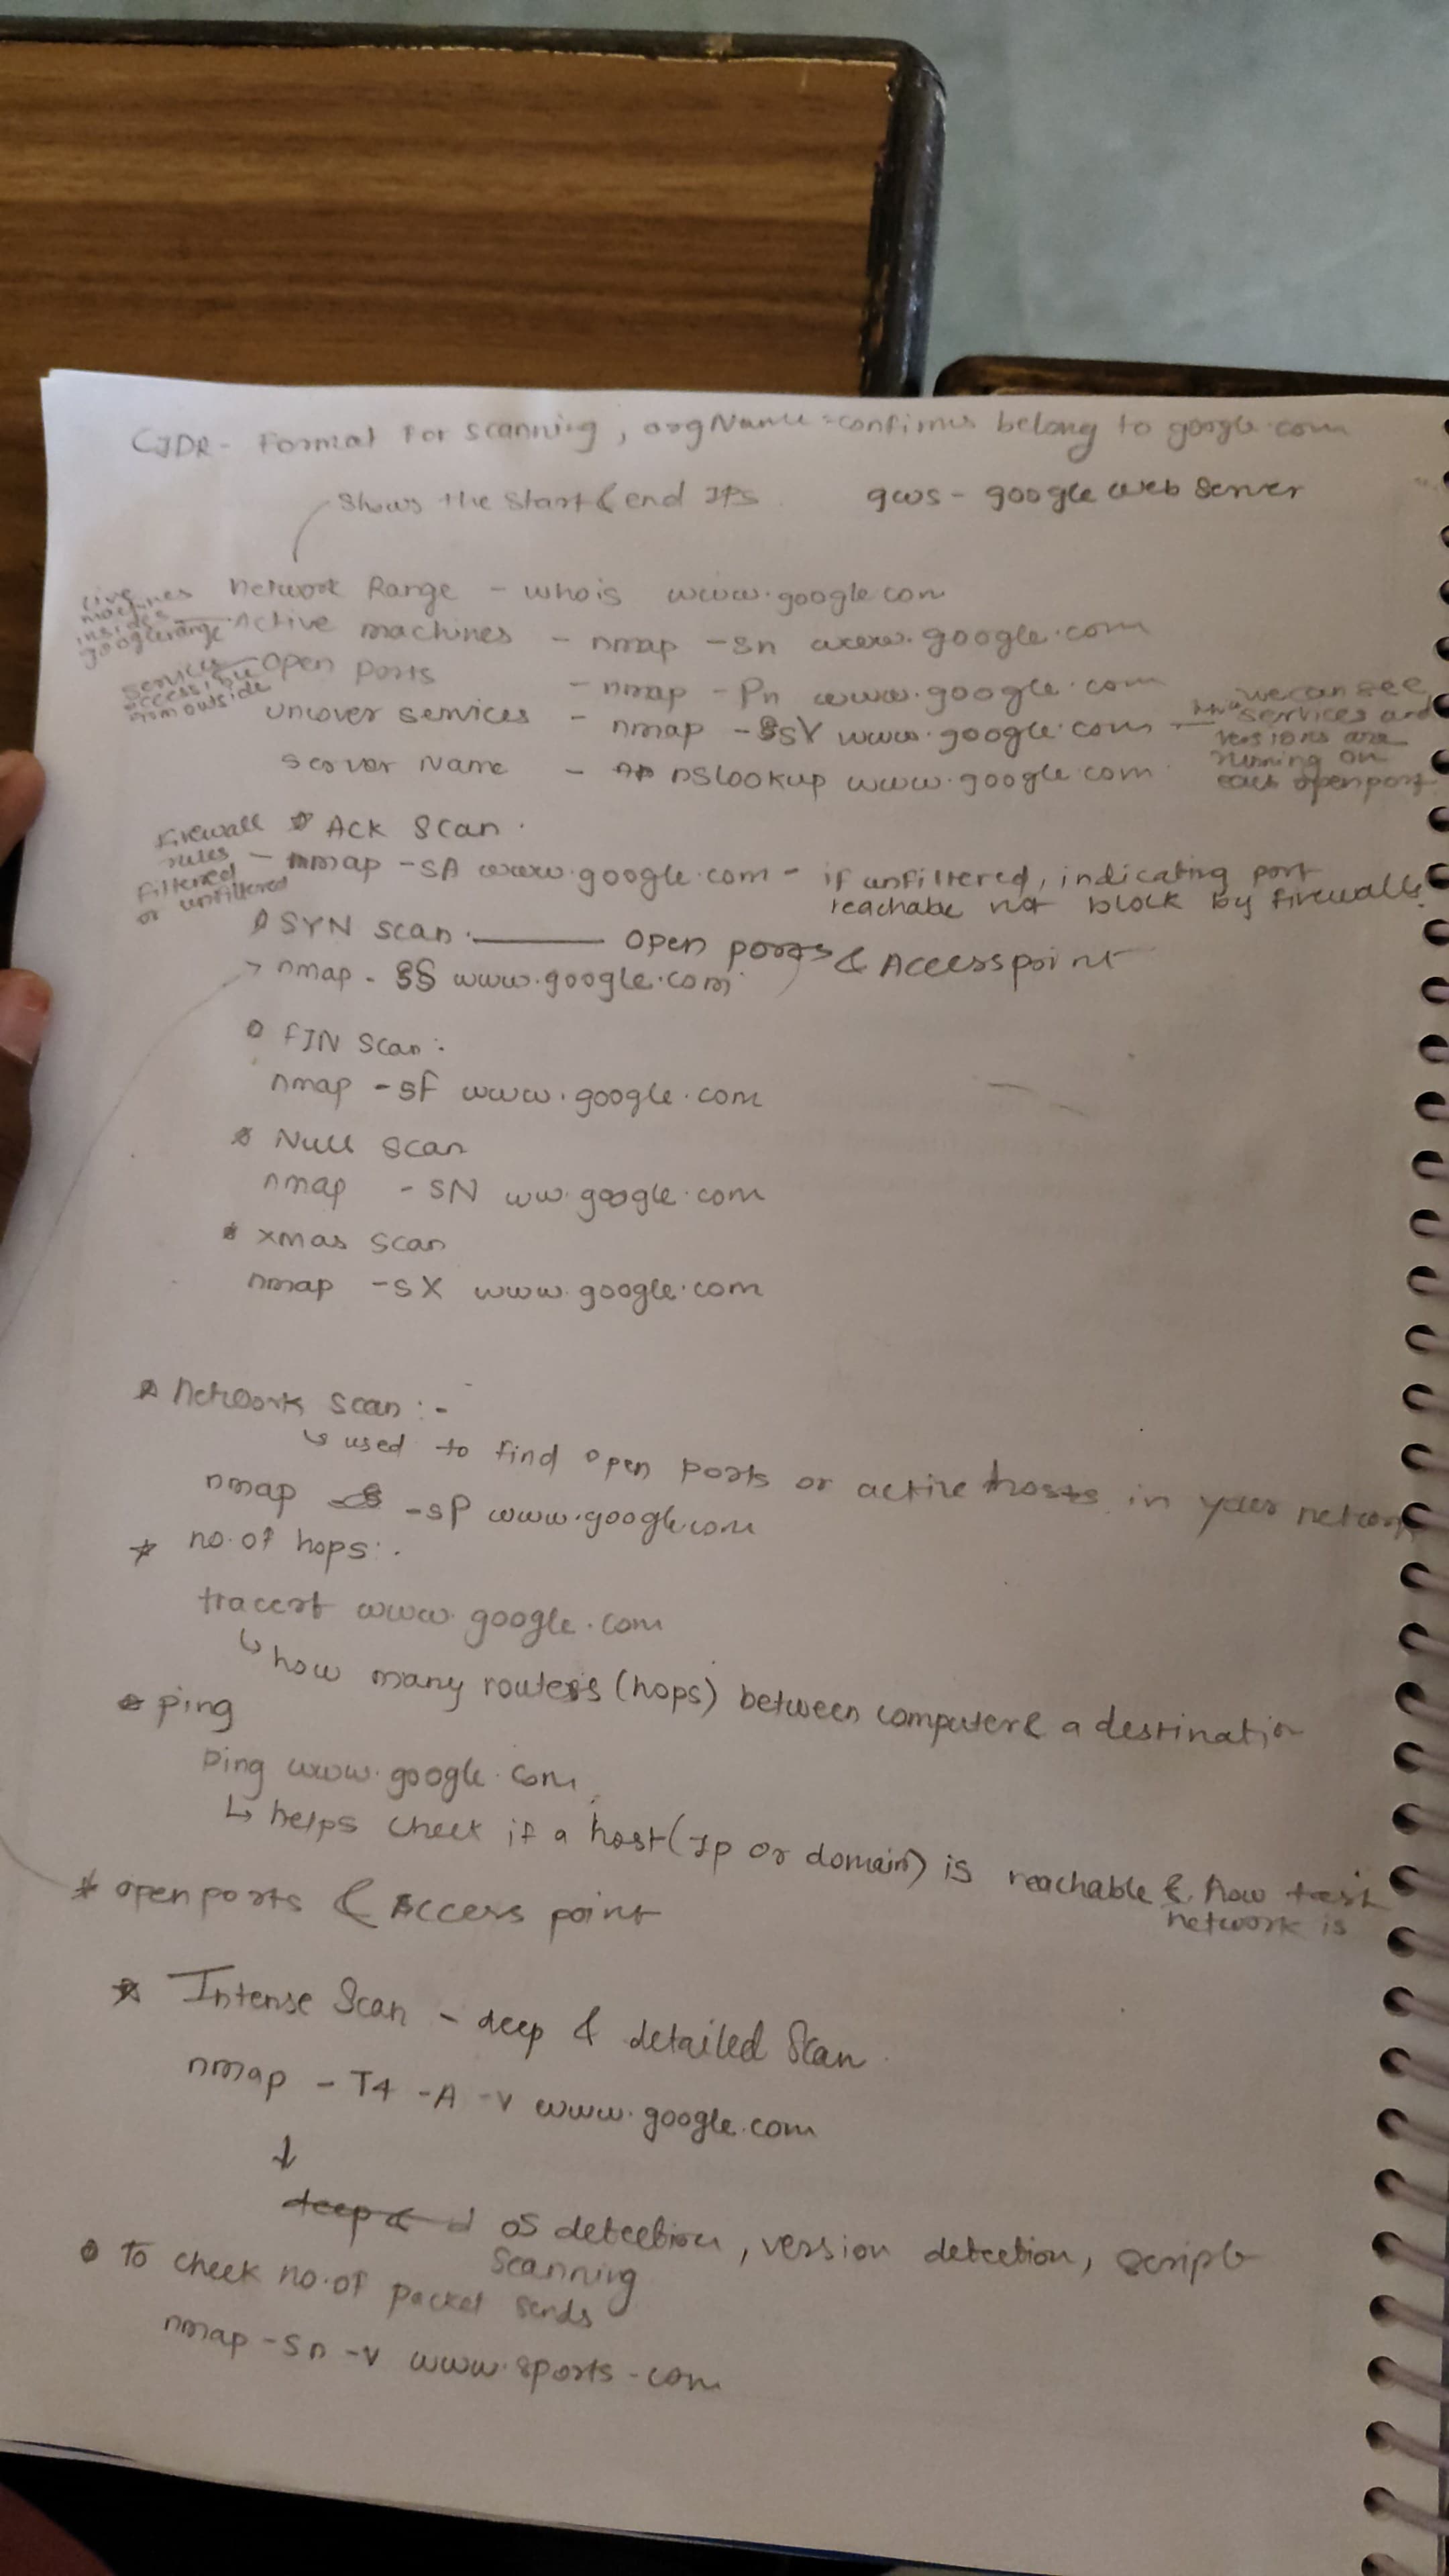 CIDR - Format for scanning, orgName = confirms belong to google.com
Shows the start & end IPs
gws - google web server
Network Range - whois www.google.com
live machines inside google range
Active machines - nmap -sn www.google.com
services accessible from outside
open ports - nmap -Pn www.google.com
uncover services - nmap -sV www.google.com
we can see
services and
versions are
running on
each open port
server Name - nslookup www.google.com
Firewall
rules
filtered
or unfiltered
Ack Scan.
nmap -sA www.google.com - if unfiltered, indicating port
reachabe not block by firewalls.
SYN scan. Open ports & Accesspoint
nmap - sS www.google.com
FIN Scan:
nmap -sF www.google.com
Null Scan
nmap -sN ww.google.com
xmas Scan
nmap -sX www.google.com
* Network Scan :-
used to find open ports or active hosts in your network
nmap -sP www.google.com
* no.of hops:.
tracert www.google.com
how many routers (hops) between computer & a destination
ping
ping www.google.com
helps check if a host (Ip or domain) is reachable & how fast
network is
* open ports & Access point
* Intense Scan - deep & detailed Scan
nmap -T4 -A -v www.google.com
deep & d OS detection, version detection, script
scanning
To check no.of packet sends
nmap -sn -v www.sports-com